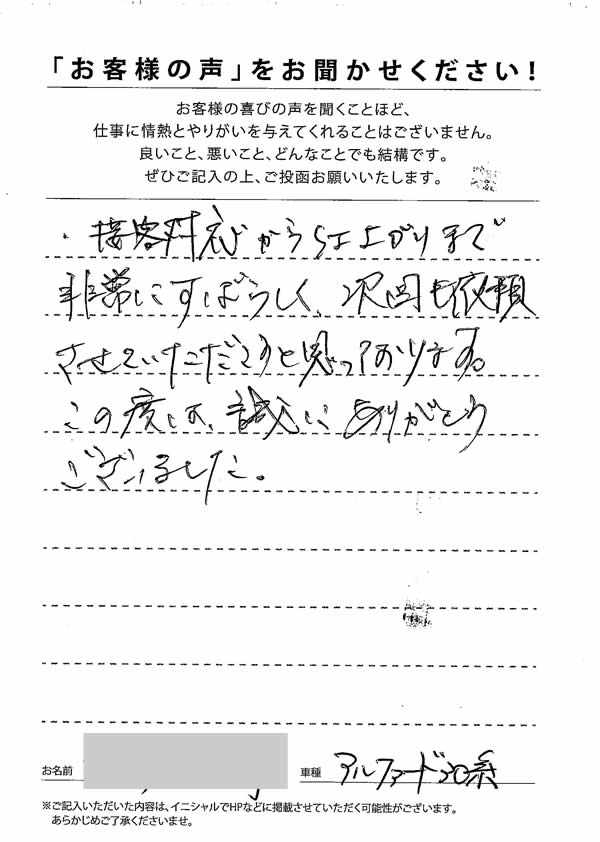 「お客様の声」をお聞かせください！
お客様の喜びの声を聞くことほど、
仕事に情熱とやりがいを与えてくれることはございません。
良いこと、悪いこと、どんなことでも結構です。
ぜひご記入の上、ご投函お願いいたします。
・接客対応から仕上がりまで
非常にすばらしく、次回も依頼
させていただこうと思っております。
この度は、誠に ありがとう
ございました。
お名前
車種 アルファード30系
※ご記入いただいた内容は、イニシャルでHPなどに掲載させていただく可能性がございます。
あらかじめご了承くださいませ。